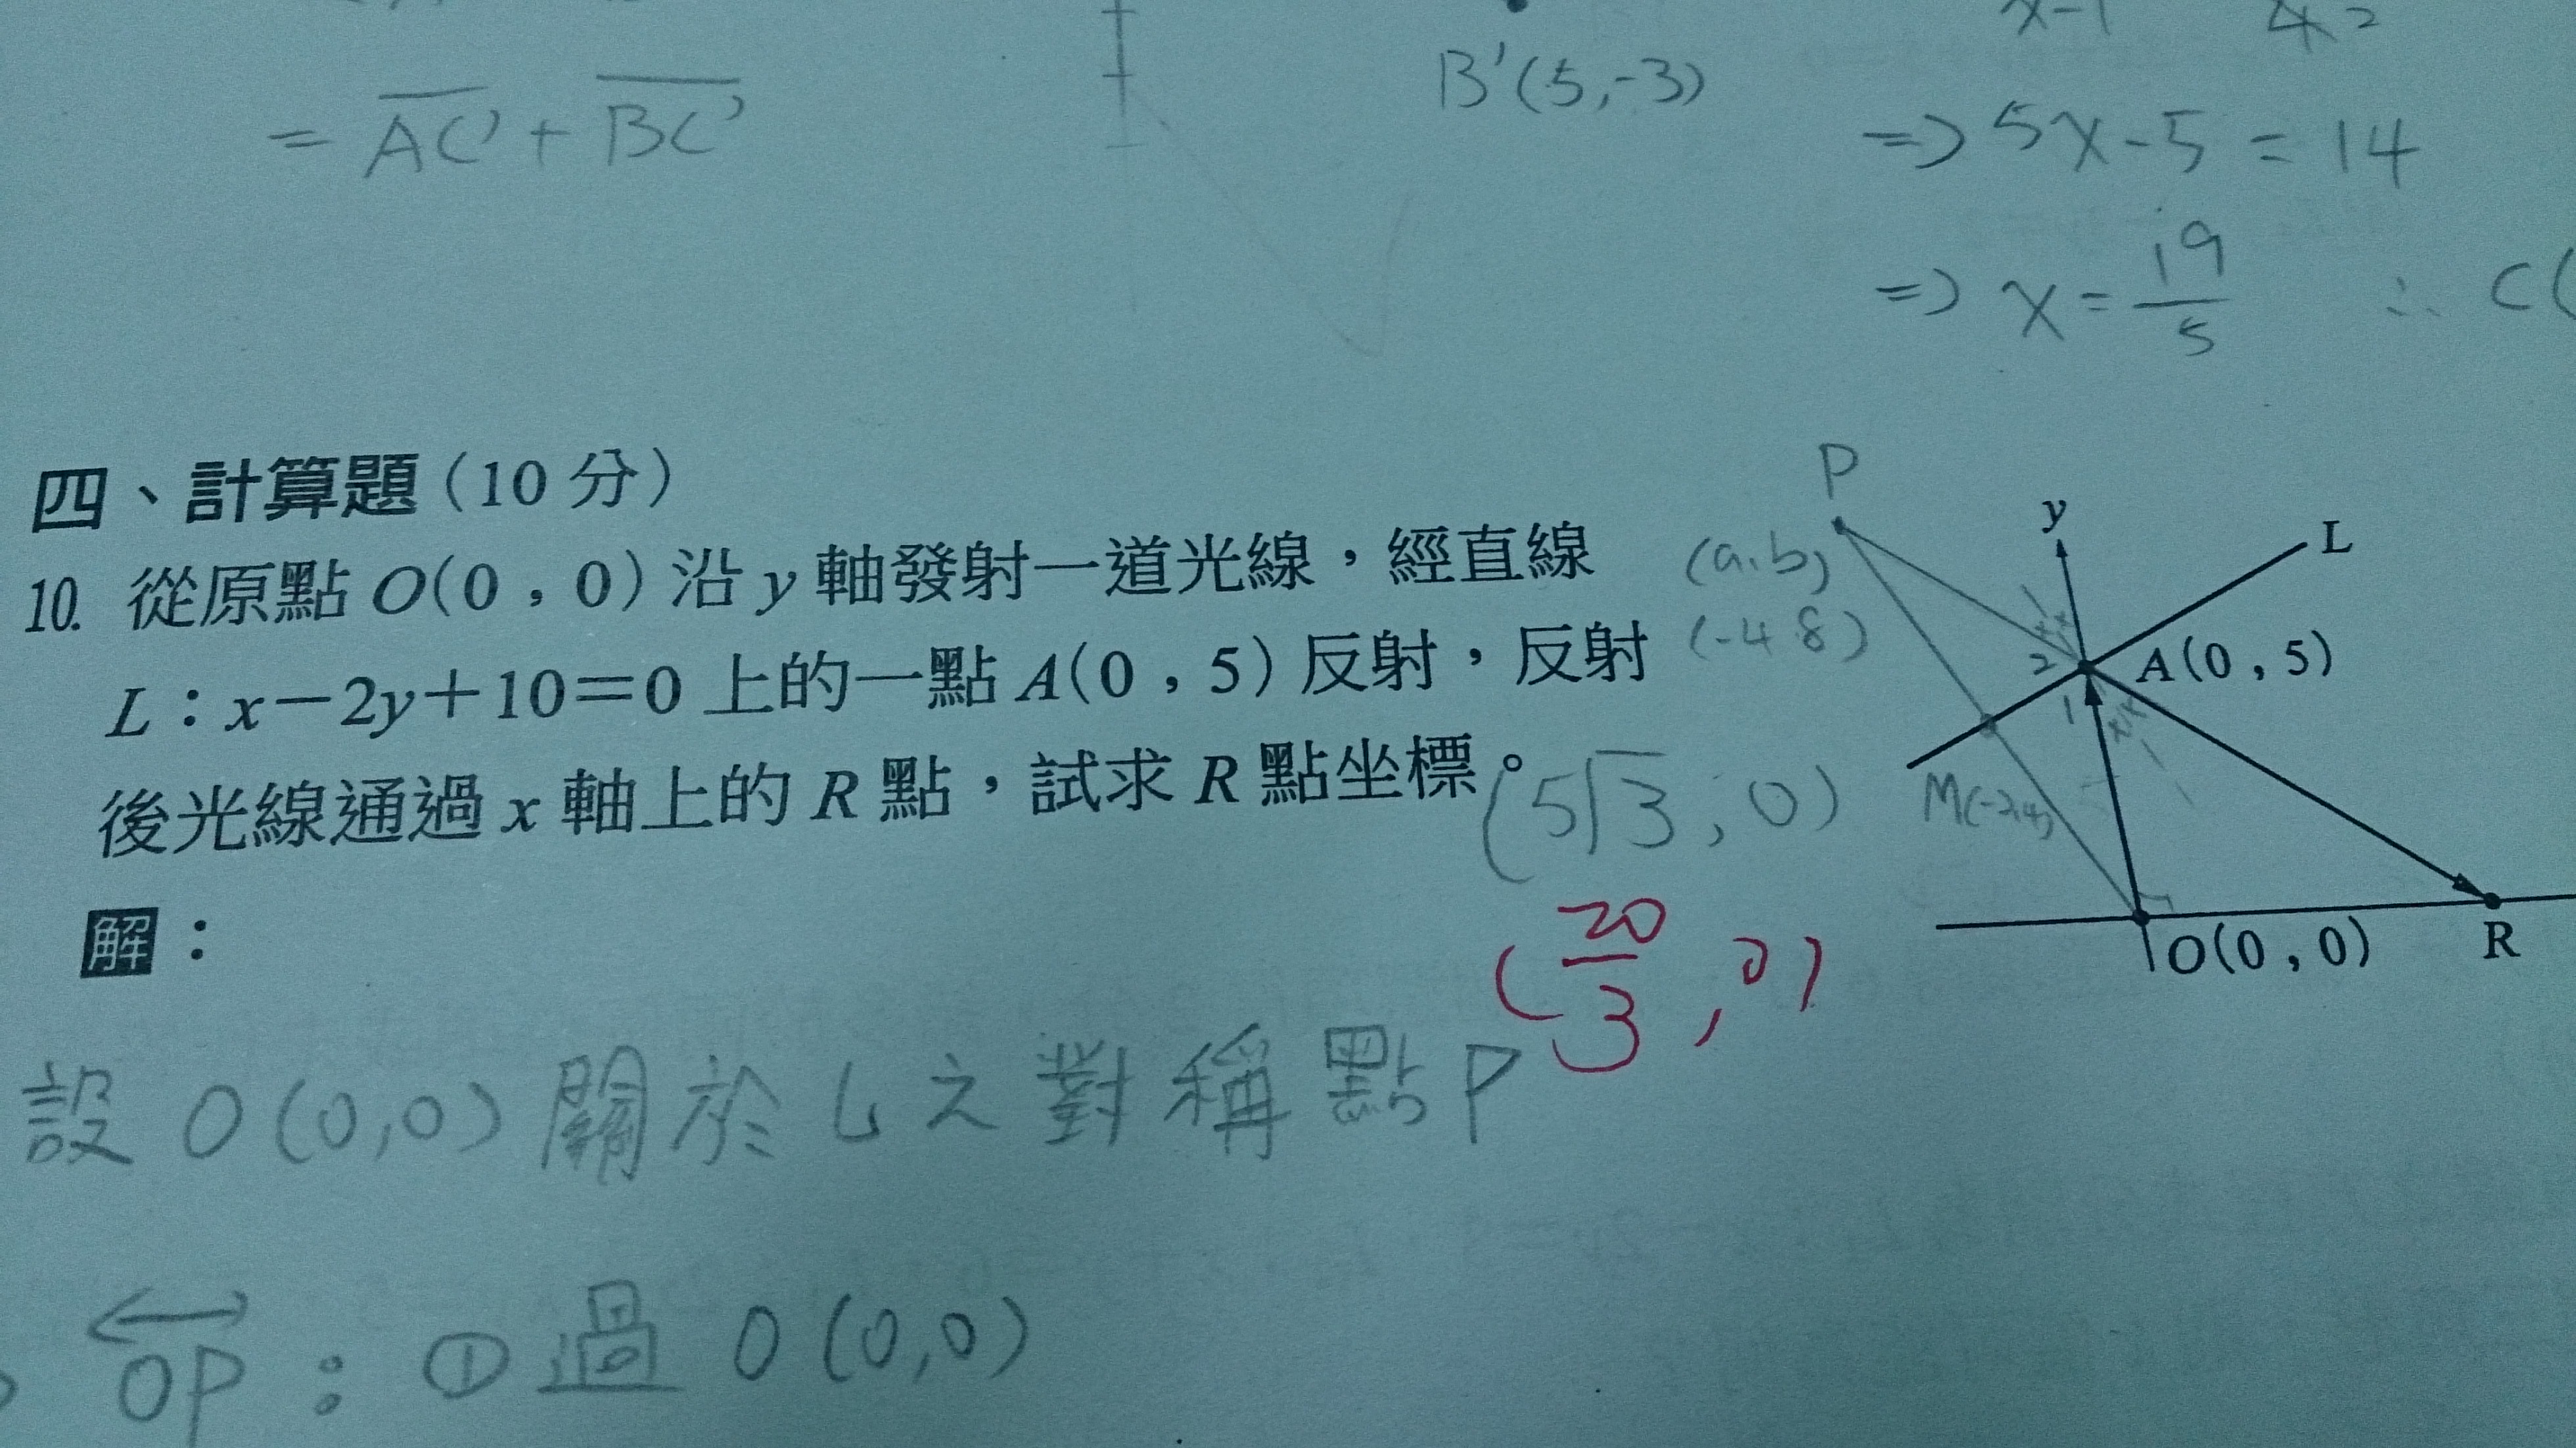 = AC + BC
B'(5,-3)
x-1
=> 5x-5 = 14
=> x = 19/5 ∴ C(
四、計算題(10 分)
10. 從原點 O(0,0) 沿 y 軸發射一道光線,經直線
L:x-2y+10=0 上的一點 A(0,5) 反射,反射
後光線通過 x 軸上的 R 點,試求 R 點坐標。
(5√3, 0)
(20/3, 0)
P
(a,b)
(-4 8)
y
L
2
A(0,5)
1
M(-2,4)
O(0,0)
R
解:
設 O(0,0) 關於 L 之對稱點 P
OP : ① 過 O(0,0)